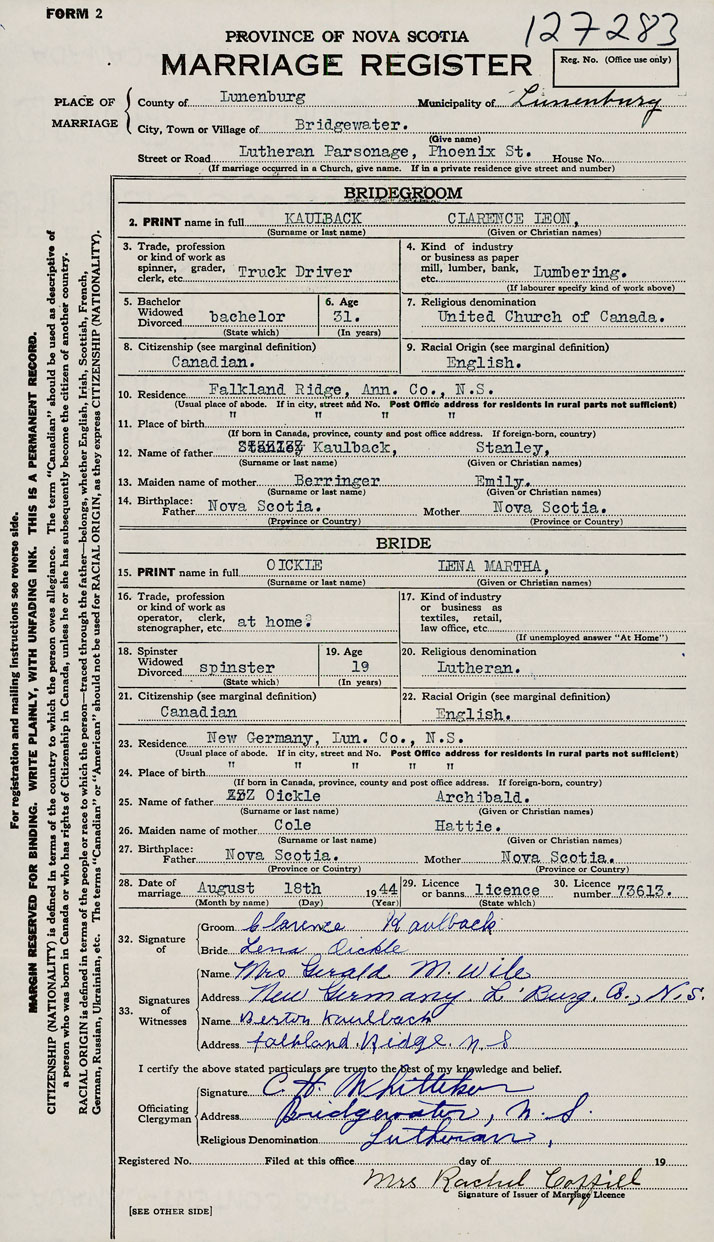 FORM 2
127283
PROVINCE OF NOVA SCOTIA
MARRIAGE REGISTER
Reg. No. (Office use only)
PLACE OF MARRIAGE
County of Lunenburg Municipality of Lunenburg
City, Town or Village of Bridgewater.
(Give name)
Street or Road Lutheran Parsonage, Phoenix St. House No.
(If marriage occurred in a Church, give name. If in a private residence give street and number)
BRIDEGROOM
2. PRINT name in full KAULBACK CLARENCE LEON,
(Surname or last name) (Given or Christian names)
3. Trade, profession or kind of work as spinner, grader, clerk, etc. Truck Driver
4. Kind of industry or business as paper mill, lumber, bank, etc. Lumbering.
(If labourer specify kind of work above)
5. Bachelor Widowed Divorced bachelor
(State which)
6. Age 31.
(In years)
7. Religious denomination
United Church of Canada.
8. Citizenship (see marginal definition)
Canadian.
9. Racial Origin (see marginal definition)
English.
10. Residence Falkland Ridge, Ann. Co., N.S.
(Usual place of abode. If in city, street and No. Post Office address for residents in rural parts not sufficient)
11. Place of birth " " " "
(If born in Canada, province, county and post office address. If foreign-born, country)
12. Name of father Kaulback, Stanley,
(Surname or last name) (Given or Christian names)
13. Maiden name of mother Berringer Emily.
(Surname or last name) (Given or Christian names)
14. Birthplace: Father Nova Scotia. Mother Nova Scotia.
(Province or Country) (Province or Country)
BRIDE
15. PRINT name in full OICKLE LENA MARTHA,
(Surname or last name) (Given or Christian names)
16. Trade, profession or kind of work as operator, clerk, stenographer, etc. at home?
17. Kind of industry or business as textiles, retail, law office, etc.
(If unemployed answer "At Home")
18. Spinster Widowed Divorced spinster
(State which)
19. Age 19
(In years)
20. Religious denomination
Lutheran.
21. Citizenship (see marginal definition)
Canadian
22. Racial Origin (see marginal definition)
English.
23. Residence New Germany, Lun. Co., N.S.
(Usual place of abode. If in city, street and No. Post Office address for residents in rural parts not sufficient)
24. Place of birth " " " "
(If born in Canada, province, county and post office address. If foreign-born, country)
25. Name of father Oickle Archibald.
(Surname or last name) (Given or Christian names)
26. Maiden name of mother Cole Hattie.
(Surname or last name) (Given or Christian names)
27. Birthplace: Father Nova Scotia. Mother Nova Scotia.
(Province or Country) (Province or Country)
28. Date of marriage August 18th 1944
(Month by name) (Day) (Year)
29. Licence or banns licence
(State which)
30. Licence number 73613.
32. Signature of
Groom Clarence Kaulback
Bride Lena Oickle
33. Signatures of Witnesses
Name Mrs Gerald M. Wile
Address New Germany. L'Burg. Co., N.S.
Name Berton Kaulback
Address Falkland Ridge. N S
I certify the above stated particulars are true to the best of my knowledge and belief.
Officiating Clergyman
Signature C. H. Whitteker
Address Bridgewater, N. S.
Religious Denomination Lutheran,
Registered No. Filed at this office day of 19
Mrs Rachel
Signature of Issuer of Marriage Licence
[SEE OTHER SIDE]
For registration and mailing instructions see reverse side.
MARGIN RESERVED FOR BINDING. WRITE PLAINLY, WITH UNFADING INK. THIS IS A PERMANENT RECORD.
CITIZENSHIP (NATIONALITY) is defined in terms of the country to which the person owes allegiance. The term "Canadian" should be used as descriptive of
a person who was born in Canada or who has rights of Citizenship in Canada, unless he or she has subsequently become the citizen of another country.
RACIAL ORIGIN is defined in terms of the people or race to which the person—traced through the father—belongs, whether English, Irish, Scottish, French,
German, Russian, Ukrainian, etc. The terms "Canadian" or "American" should not be used for RACIAL ORIGIN, as they express CITIZENSHIP (NATIONALITY).